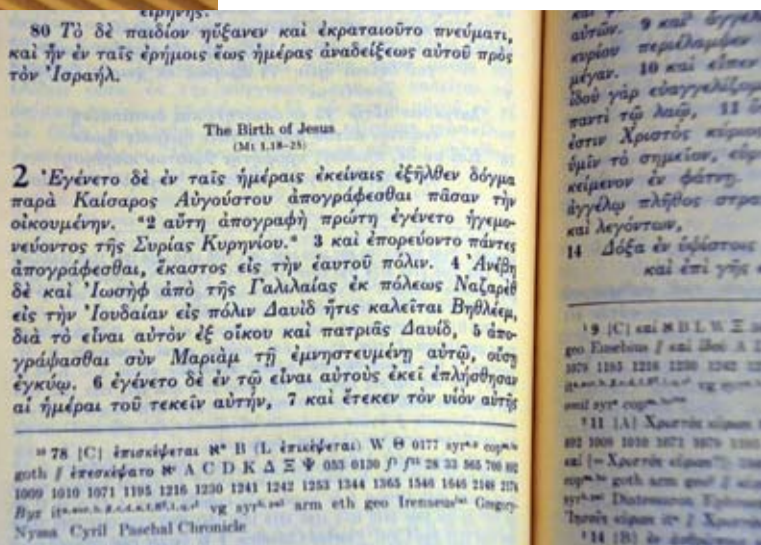 εἰρήνης.
80 Τὸ δὲ παιδίον ηὔξανεν καὶ ἐκραταιοῦτο πνεύματι,
καὶ ἦν ἐν ταῖς ἐρήμοις ἕως ἡμέρας ἀναδείξεως αὐτοῦ πρὸς
τὸν Ἰσραήλ.
The Birth of Jesus
(Mt 1.18–25)
2 Ἐγένετο δὲ ἐν ταῖς ἡμέραις ἐκείναις ἐξῆλθεν δόγμα
παρὰ Καίσαρος Αὐγούστου ἀπογράφεσθαι πᾶσαν τὴν
οἰκουμένην. ᵃ2 αὕτη ἀπογραφὴ πρώτη ἐγένετο ἡγεμο-
νεύοντος τῆς Συρίας Κυρηνίου.ᵃ 3 καὶ ἐπορεύοντο πάντες
ἀπογράφεσθαι, ἕκαστος εἰς τὴν ἑαυτοῦ πόλιν. 4 Ἀνέβη
δὲ καὶ Ἰωσὴφ ἀπὸ τῆς Γαλιλαίας ἐκ πόλεως Ναζαρὲθ
εἰς τὴν Ἰουδαίαν εἰς πόλιν Δαυὶδ ἥτις καλεῖται Βηθλέεμ,
διὰ τὸ εἶναι αὐτὸν ἐξ οἴκου καὶ πατριᾶς Δαυίδ, 5 ἀπο-
γράψασθαι σὺν Μαριὰμ τῇ ἐμνηστευμένῃ αὐτῷ, οὔσῃ
ἐγκύῳ. 6 ἐγένετο δὲ ἐν τῷ εἶναι αὐτοὺς ἐκεῖ ἐπλήσθησαν
αἱ ἡμέραι τοῦ τεκεῖν αὐτήν, 7 καὶ ἔτεκεν τὸν υἱὸν αὐτῆς
78 {C} ἐπισκέψεται א* B (L ἐπισκέψεται) W Θ 0177
goth // ἐπεσκέψατο A C D K Δ Ξ Ψ 053 0130 28 33 565 700 892
1009 1010 1071 1195 1216 1230 1241 1242 1253 1344 1365 1546 1646 2148 2174
Byz vg arm eth geo Irenaeus Gregory-
Nyssa Cyril Paschal Chronicle
αὐτῶν. 9 καὶ
κυρίου περιέλαμψεν
μέγαν. 10 καὶ εἶπεν
ἰδοὺ γὰρ εὐαγγελίζομαι
παντὶ τῷ λαῷ, 11
ἐστιν Χριστὸς κύριος
ὑμῖν τὸ σημεῖον,
κείμενον ἐν φάτνῃ.
ἀγγέλῳ πλῆθος
καὶ λεγόντων,
14 Δόξα ἐν ὑψίστοις
καὶ ἐπὶ γῆς
9 {C} καὶ א B L W Ξ
geo Eusebius // καὶ ἰδού A
11 {A} Χριστὸς κύριος
14 {B}